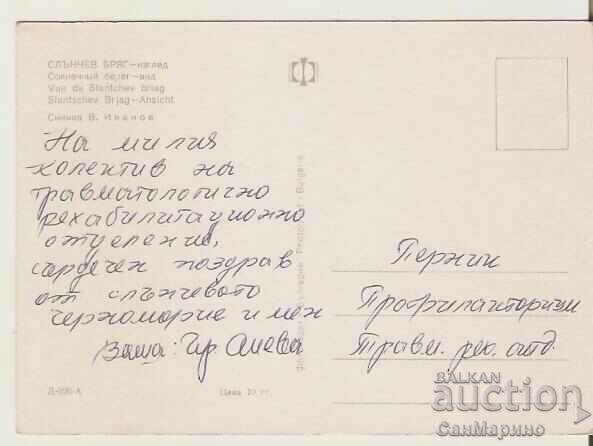 СЛЪНЧЕВ БРЯГ—изглед
Солнечный берег—вид
Vue de Slantchev briag
Slantschev Brjag—Ansicht
Снимка В. Иванов
На милия
колектив на
травматологично
рехабилитационно
отделение,
сърдечен поздрав
от слънчевото
черноморие и мен
Ваша: Гр.
Перник
Профилакториум
Травм. рех. отд.
Д-990-А
Цена 10 ст.
BALKAN
auction
СанМарино